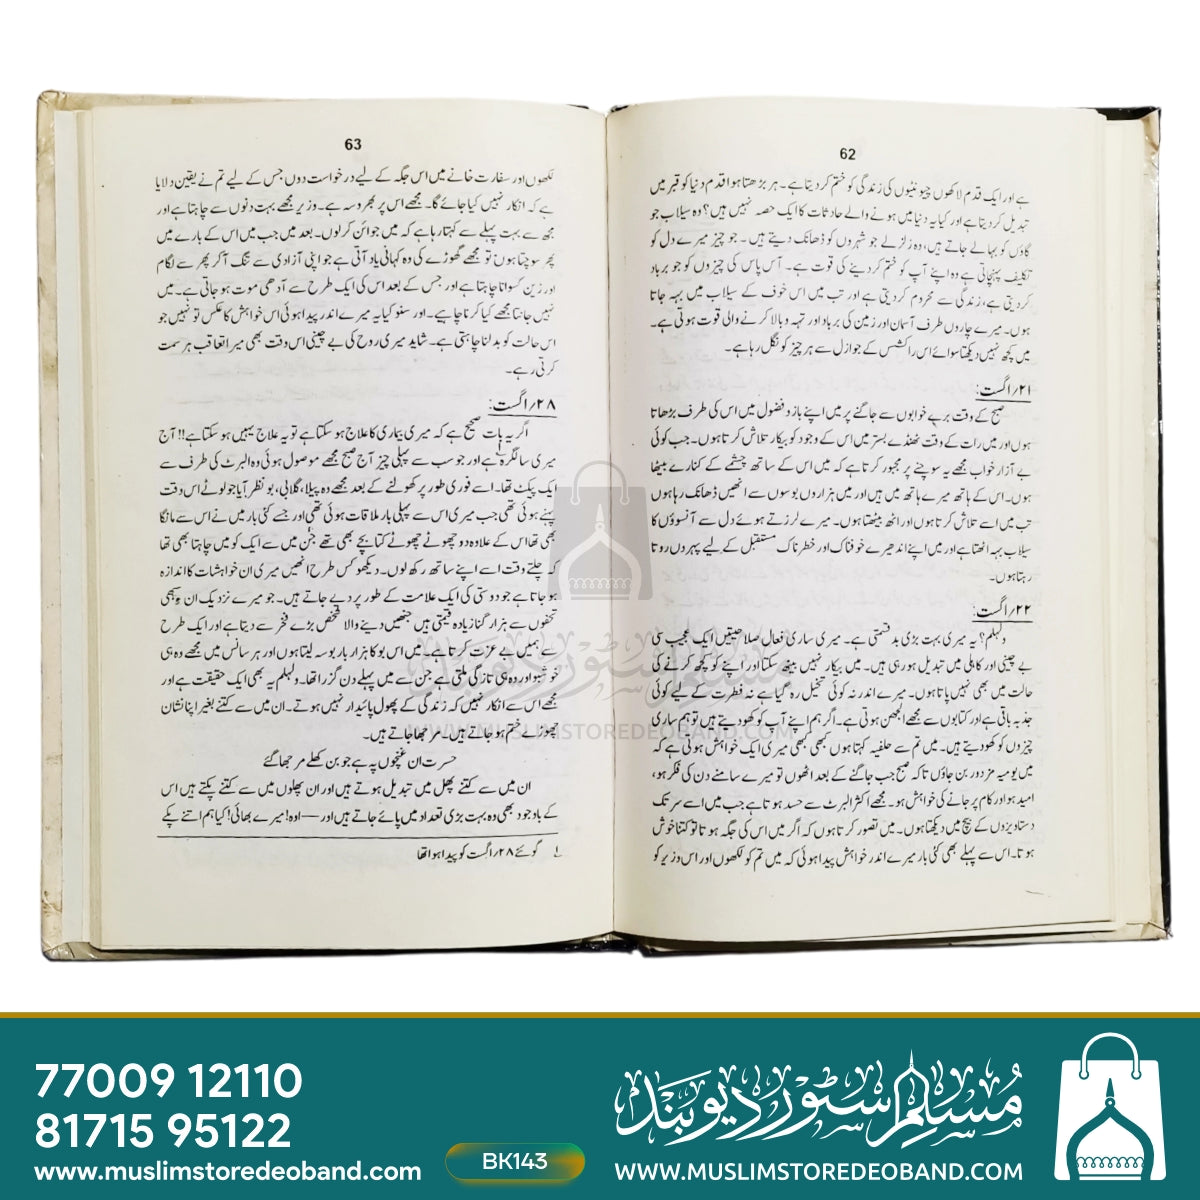 62
ہے اور ایک قدم لاکھوں چیونٹیوں کی زندگی کو ختم کر دیتا ہے۔ ہر بڑھتا ہوا قدم دنیا کو قبر میں
تبدیل کر دیتا ہے اور کیا یہ دنیا میں ہونے والے حادثات کا ایک حصہ نہیں ہیں؟ وہ سیلاب جو
گاؤں کو بہا لے جاتے ہیں، وہ زلزلے جو شہروں کو ڈھانک دیتے ہیں۔ جو چیز میرے دل کو
تکلیف پہنچاتی ہے وہ اپنے آپ کو ختم کر دینے کی قوت ہے۔ آس پاس کی چیزوں کو جو برباد
کر دیتی ہے، زندگی سے محروم کر دیتی ہے اور تب میں اس خوف کے سیلاب میں بہہ جاتا
ہوں۔ میرے چاروں طرف آسمان اور زمین کی برباد اور تہہ و بالا کرنے والی قوت ہوتی ہے۔
میں کچھ نہیں دیکھتا سوائے اس راکشس کے جو ازل سے ہر چیز کو نگل رہا ہے۔
۲۱/اگست:
صبح کے وقت برے خوابوں سے جاگنے پر میں اپنے بازو فضول میں اس کی طرف بڑھاتا
ہوں اور میں رات کے وقت ٹھنڈے بستر میں اس کے وجود کو بیکار تلاش کرتا ہوں۔ جب کوئی
بے آزار خواب مجھے یہ سوچنے پر مجبور کرتا ہے کہ میں اس کے ساتھ چشمے کے کنارے بیٹھا
ہوں۔ اس کے ہاتھ میرے ہاتھ میں ہیں اور میں ہزاروں بوسوں سے انھیں ڈھانک رہا ہوں
تب میں اسے تلاش کرتا ہوں اور اٹھ بیٹھتا ہوں۔ میرے لرزتے ہوئے دل سے آنسوؤں کا
سیلاب بہہ اٹھتا ہے اور میں اپنے اندھیرے خوفناک اور خطرناک مستقبل کے لیے پہروں روتا
رہتا ہوں۔
۲۲/اگست:
ولہلم؟ یہ میری بہت بڑی بدقسمتی ہے۔ میری ساری فعال صلاحیتیں ایک عجیب سی
بے چینی اور کاہلی میں تبدیل ہو رہی ہیں۔ میں بیکار نہیں بیٹھ سکتا اور اپنے کو کچھ کرنے کی
حالت میں بھی نہیں پاتا ہوں۔ میرے اندر نہ کوئی تخیل رہ گیا ہے نہ فطرت کے لیے کوئی
جذبہ باقی ہے اور کتابوں سے مجھے الجھن ہوتی ہے۔ اگر ہم اپنے آپ کو کھو دیتے ہیں تو ہم ساری
چیزوں کو کھو دیتے ہیں۔ میں تم سے حلفیہ کہتا ہوں کبھی کبھی میری ایک خواہش ہوتی ہے کہ
میں یومیہ مزدور بن جاؤں تاکہ صبح جب جاگنے کے بعد اٹھوں تو میرے سامنے دن کی فکر ہو،
امید ہو اور کام پر جانے کی خواہش ہو۔ مجھے اکثر البرٹ سے حسد ہوتا ہے جب میں اسے سر تک
دستاویزوں کے بیچ میں دیکھتا ہوں۔ میں تصور کرتا ہوں کہ اگر میں اس کی جگہ ہوتا تو کتنا خوش
ہوتا۔ اس سے پہلے بھی کئی بار میرے اندر خواہش پیدا ہوئی کہ میں تم کو لکھوں اور اس وزیر کو
63
لکھوں اور سفارت خانے میں اس جگہ کے لیے درخواست دوں جس کے لیے تم نے یقین دلایا
ہے کہ انکار نہیں کیا جائے گا۔ مجھے اس پر بھروسہ ہے۔ وزیر مجھے بہت دنوں سے چاہتا ہے اور
مجھ سے بہت پہلے سے کہتا رہا ہے کہ میں جوائن کر لوں۔ بعد میں جب میں اس کے بارے میں
پھر سوچتا ہوں تو مجھے گھوڑے کی وہ کہانی یاد آتی ہے جو اپنی آزادی سے تنگ آ کر پھر سے لگام
اور زین کسوانا چاہتا ہے اور جس کے بعد اس کی ایک طرح سے آدھی موت ہو جاتی ہے۔ میں
نہیں جانتا مجھے کیا کرنا چاہیے۔ اور سنو کیا یہ میرے اندر پیدا ہوئی اس خواہش کا عکس تو نہیں جو
اس حالت کو بدلنا چاہتی ہے۔ شاید میری روح کی بے چینی اس وقت بھی میرا تعاقب ہر سمت
کرتی رہے۔
۲۸/اگست:
اگر یہ بات صحیح ہے کہ میری بیماری کا علاج ہو سکتا ہے تو یہ علاج یہیں ہو سکتا ہے!! آج
میری سالگرہ ہے اور جو سب سے پہلی چیز آج صبح مجھے موصول ہوئی وہ البرٹ کی طرف سے
ایک پیکٹ تھا۔ اسے فوری طور پر کھولنے کے بعد مجھے وہ پیلا، گلابی، بو نظر آیا جو لوٹے اس وقت
پہنے ہوئی تھی جب میری اس سے پہلی بار ملاقات ہوئی تھی اور جسے کئی بار میں نے اس سے مانگا
بھی تھا اس کے علاوہ دو چھوٹے چھوٹے کتابچے بھی تھے جن میں سے ایک کو میں چاہتا بھی تھا
کہ چلتے وقت اسے اپنے ساتھ رکھ لوں۔ دیکھو کس طرح انھیں میری ان خواہشات کا اندازہ
ہو جاتا ہے جو دوستی کی ایک علامت کے طور پر دیے جاتے ہیں۔ جو میرے نزدیک ان
تحفوں سے ہزار گنا زیادہ قیمتی ہیں جنھیں دینے والا شخص بڑے فخر سے دیتا ہے اور ایک طرح
سے ہمیں بے عزت کرتا ہے۔ میں اس بو کا ہزار بار بوسہ لیتا ہوں اور ہر سانس میں مجھے وہ ہی
خوشبو اور وہ ہی تازگی ملتی ہے جن سے میں پہلے دن گزرا تھا۔ ولہلم یہ بھی ایک حقیقت ہے اور
مجھے اس سے انکار نہیں کہ زندگی کے پھول پائیدار نہیں ہوتے۔ ان میں سے کتنے بغیر اپنا نشان
چھوڑے ختم ہو جاتے ہیں۔ مرجھا جاتے ہیں۔
حسرت ان غنچوں پہ ہے جو بن کھلے مرجھا گئے
ان میں سے کتنے پھل میں تبدیل ہوتے ہیں اور ان پھلوں میں سے کتنے پکتے ہیں اس
کے باوجود بھی وہ بہت بڑی تعداد میں پائے جاتے ہیں اور — اوہ! میرے بھائی! کیا ہم اتنے پکے
۱ گوئٹے ۲۸/اگست کو پیدا ہوا تھا
مسلم سٹور دیوبند
WWW.MUSLIMSTOREDEOBAND.COM
77009 12110
81715 95122
www.muslimstoredeoband.com
BK143
مسلم سٹور دیوبند
WWW.MUSLIMSTOREDEOBAND.COM